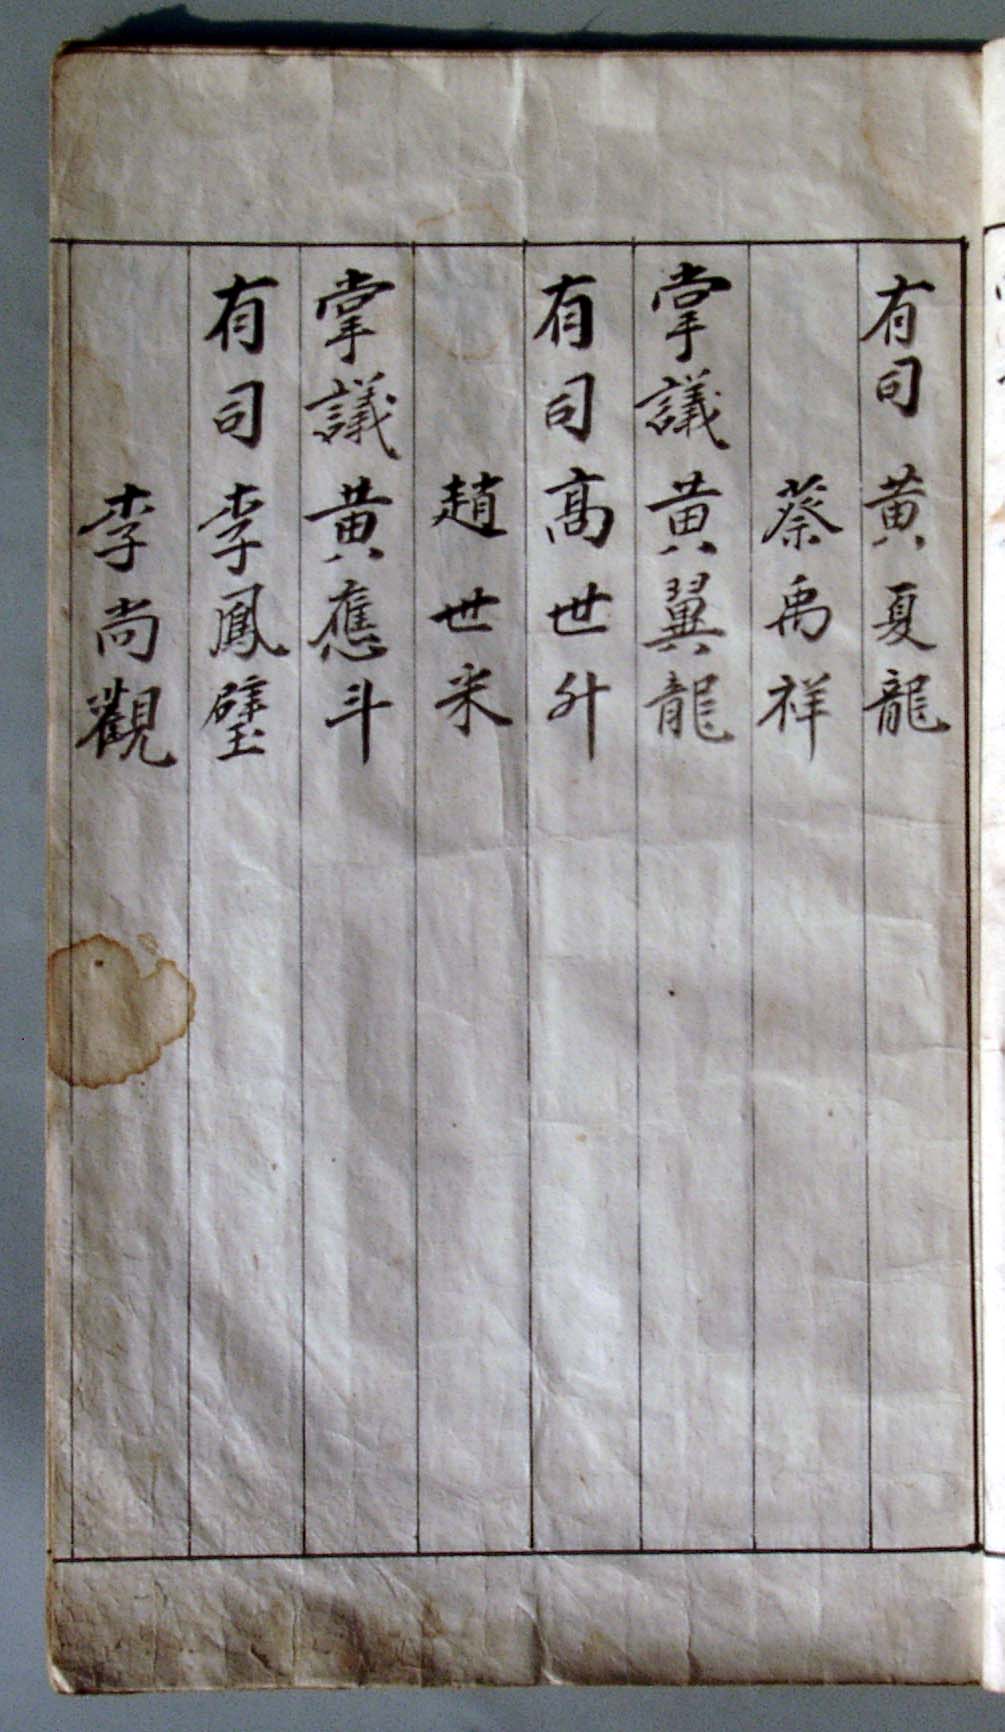 有司 黄夏龍
蔡禹祥
掌議 黄翼龍
有司 高世升
趙世米
掌議 黄應斗
有司 李鳳璧
李尚觀